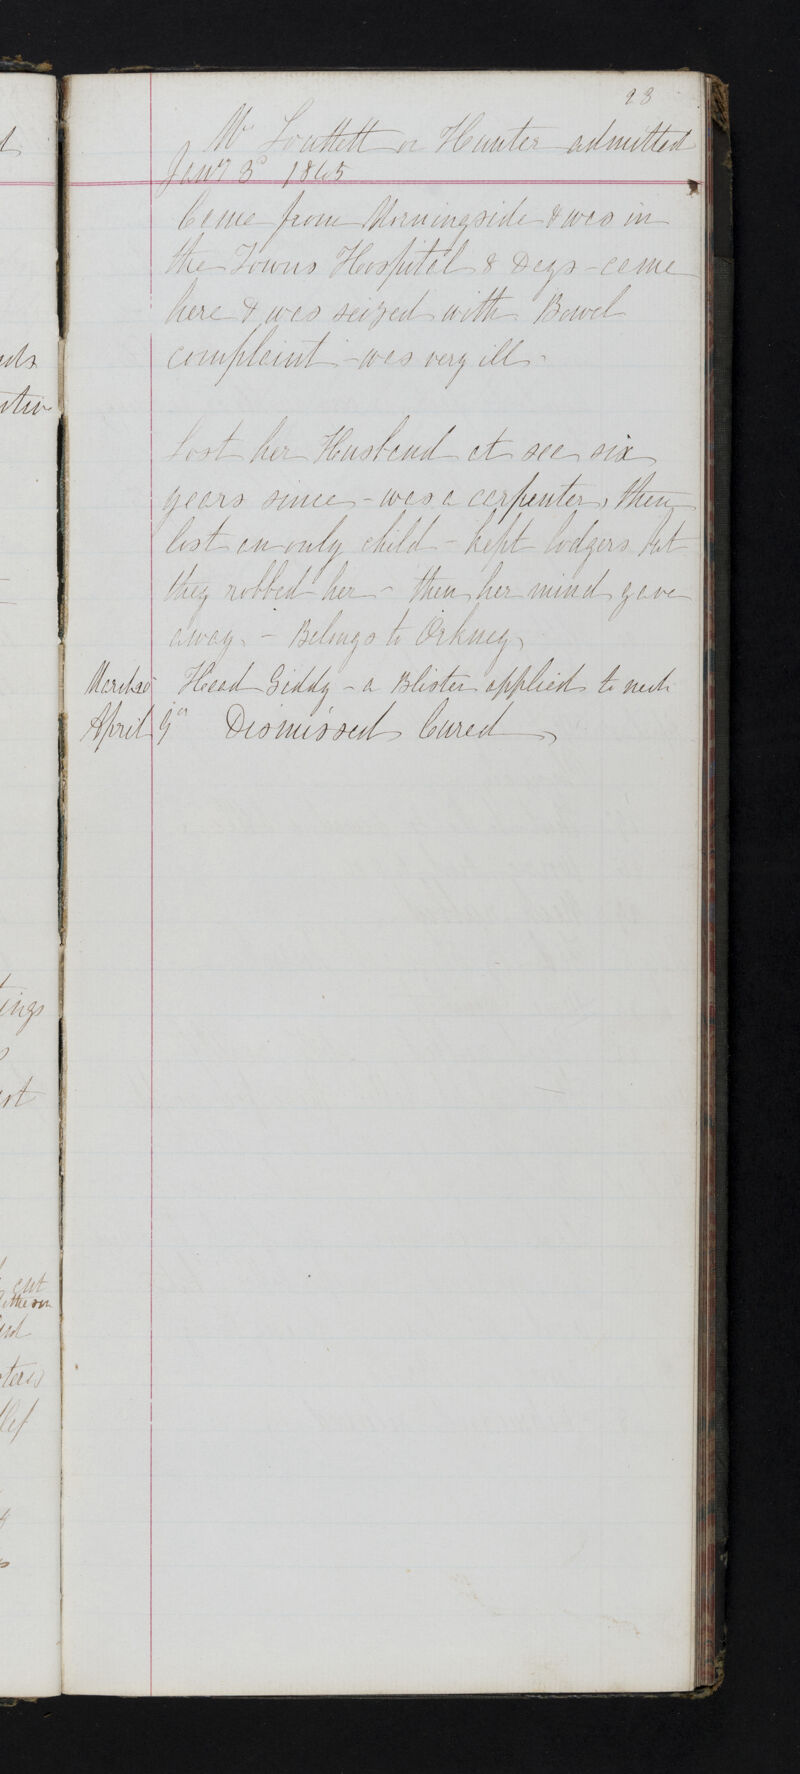 93
Mrs Louttett or Hunter admitted
Jany 3d 1865
Came from Morningside & was in
the Towns Hospital 8 Days - came
here & was seized with Bowel
complaint - was very ill -
Lost her Husband at sea six
years since - was a carpenter, then
lost an only child - kept lodgers but
they robbed her - then her mind gave
away. - Belongs to Orkney
March 20 Head Giddy - a Blister applied to neck
April 9th Dismissed Cured